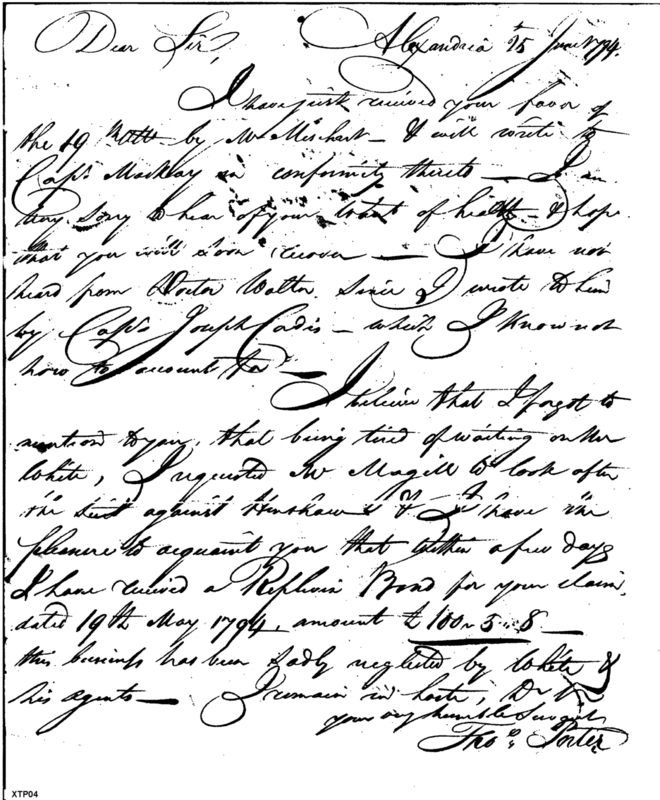 Dear Sir, Alexandria 15 June 1794.
I have just received your favor of
the 19 Ulto by Mr Mischart — I will write to
Capt. Mackay in conformity thereto — I am
very sorry to hear of your want of health — & hope
that you will soon recover — I have not
heard from Doctor Walton since I wrote to him
by Capt. Joseph Cadis — which I know not
how to account for —
I believe that I forgot to
mention to you, that being tired of waiting on Mr
White, I requested Mr Magill to look after
the Suit against Henshaw & I have the
pleasure to acquaint you that within a few days
I have received a Replevin Bond for your claim,
dated 19th May 1794, amount £100 " 5 " 8 —
this business has been sadly neglected by White &
his agents — I remain in haste, Dr Sir
your very humble Servant
Thos. Porter
XTP04